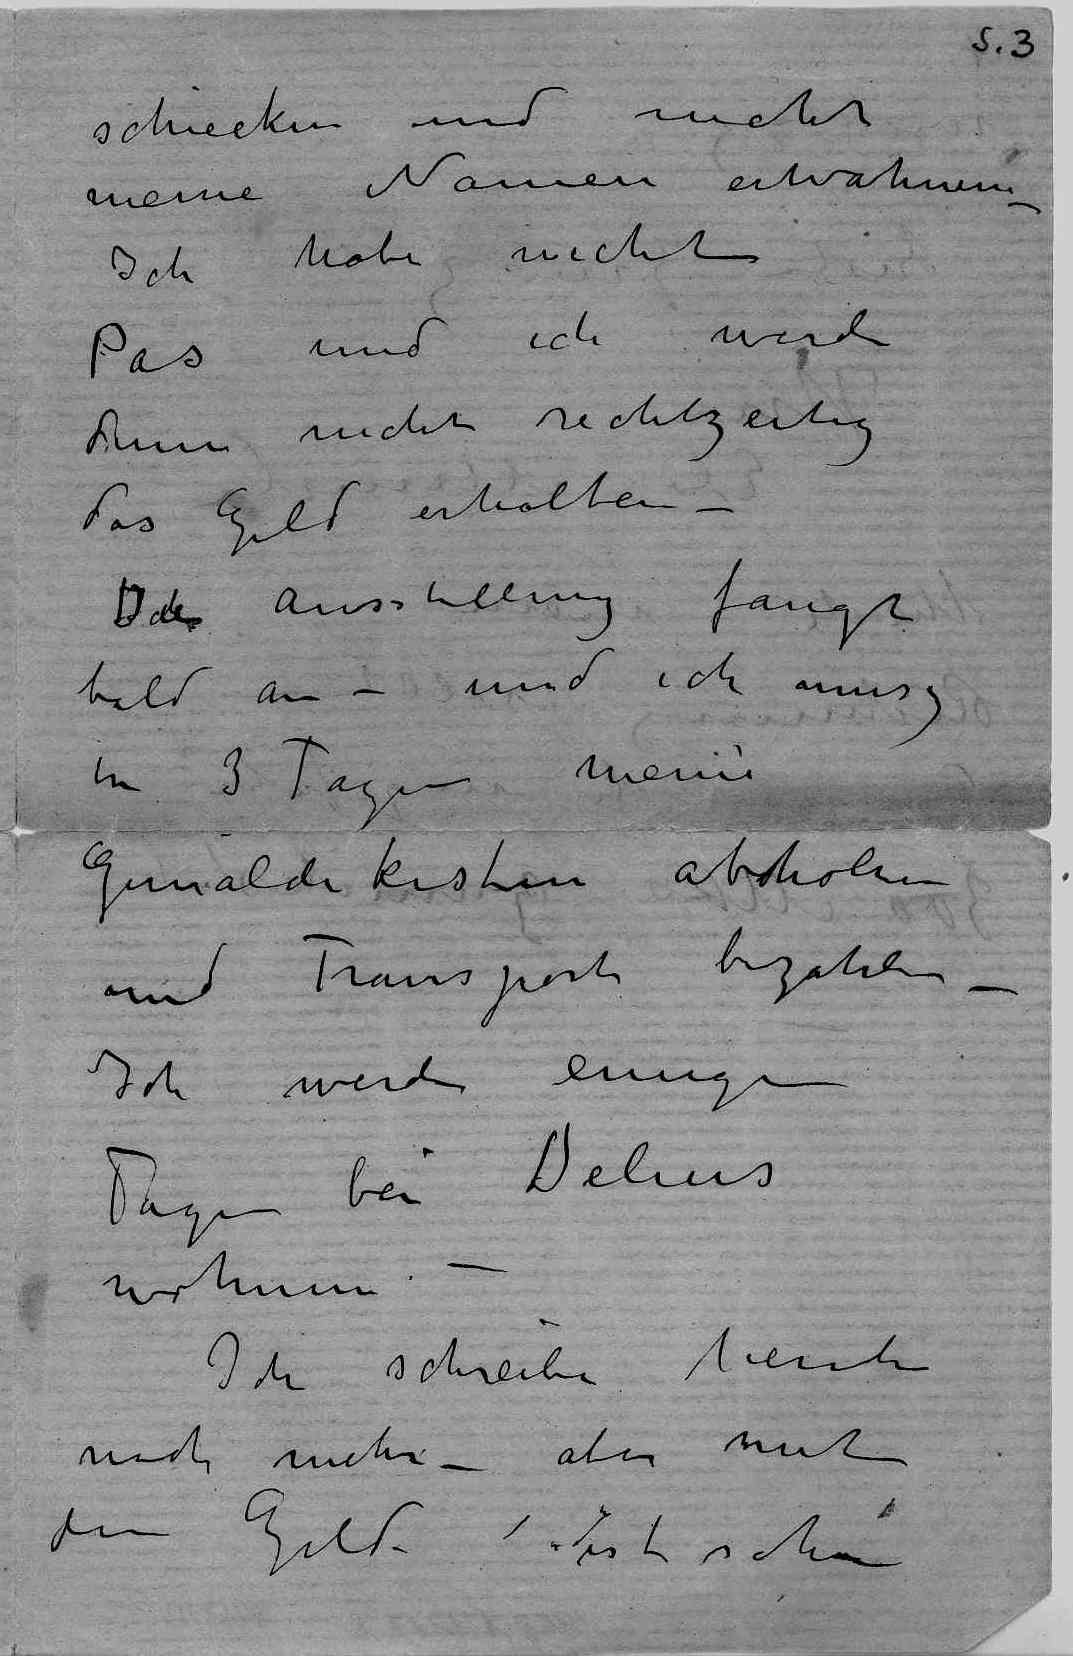 S.3
schicken und nicht
meine Namen erwähnen –
Ich habe nicht
Pas und ich werde
denn nicht rechtzeitig
das Geld erhalten –
Ide Ausstellung fangt
bald an – und ich musz
in 3 Tagen meine
Gemälde kisten abholen
und Transport bezahlen –
Ich werde einige
Tagen bei Delius
wohnen. –
Ich schreibe heute
noch mehr – aber mit
dem Geld ist schon